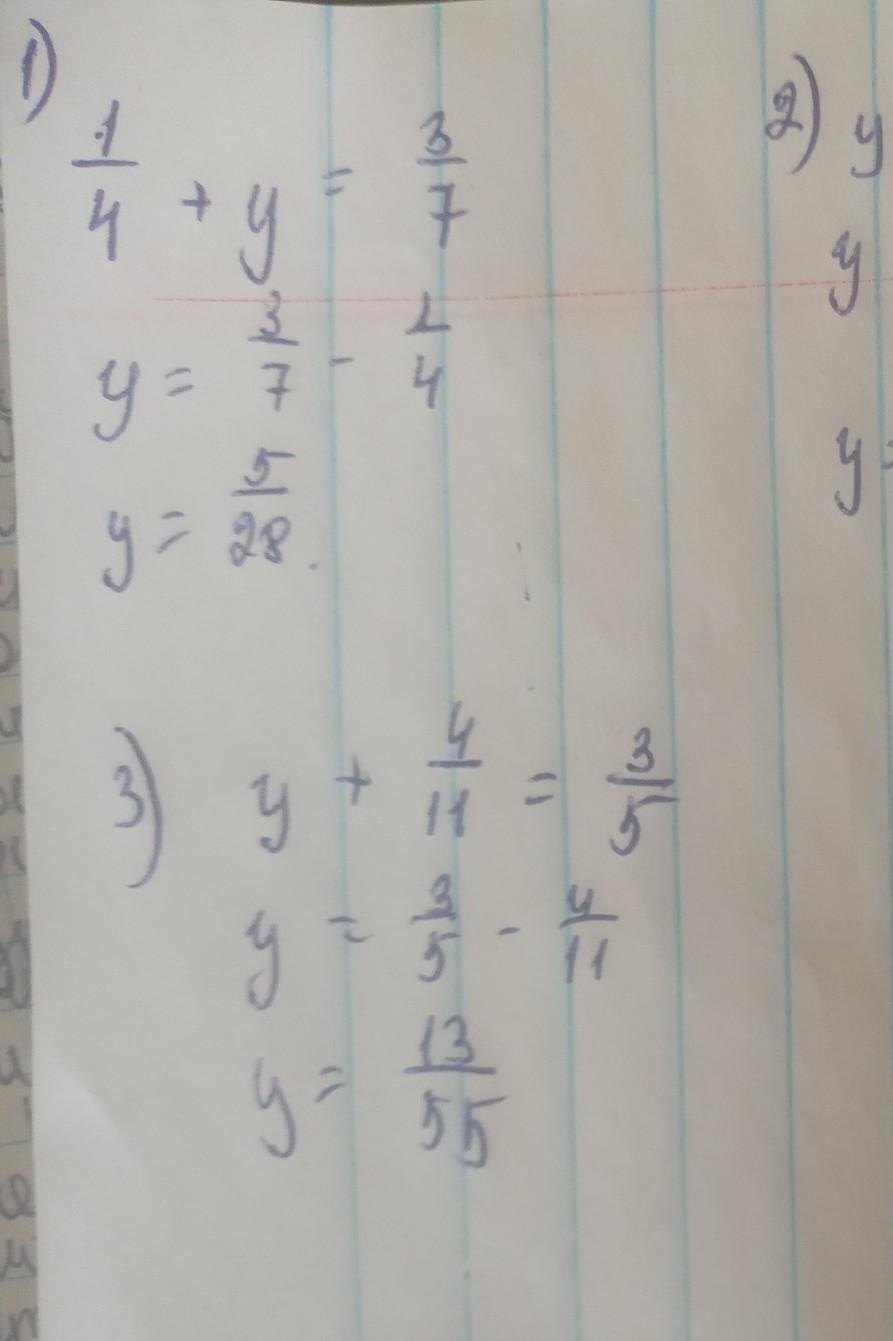 1)
1/4 + y = 3/7
y = 3/7 - 1/4
y = 5/28.
2) y
y
y =
3) y + 4/11 = 3/5
y = 3/5 - 4/11
y = 13/55